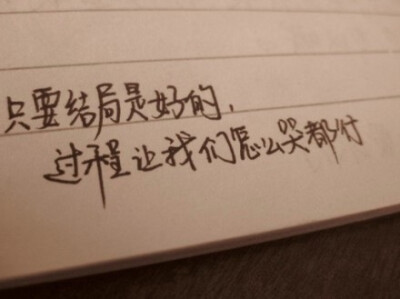 只要结局是好的，
过程让我们怎么哭都付